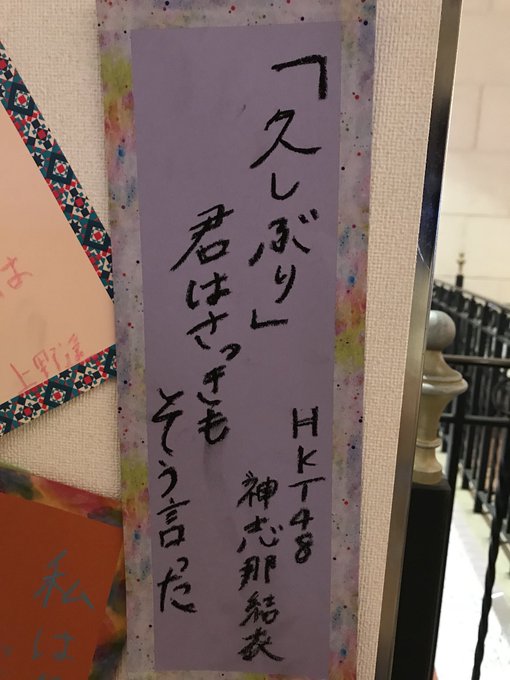 「久しぶり」
君はさっきも
そう言った
HKT48
神志那結衣
は
上野遥
私は